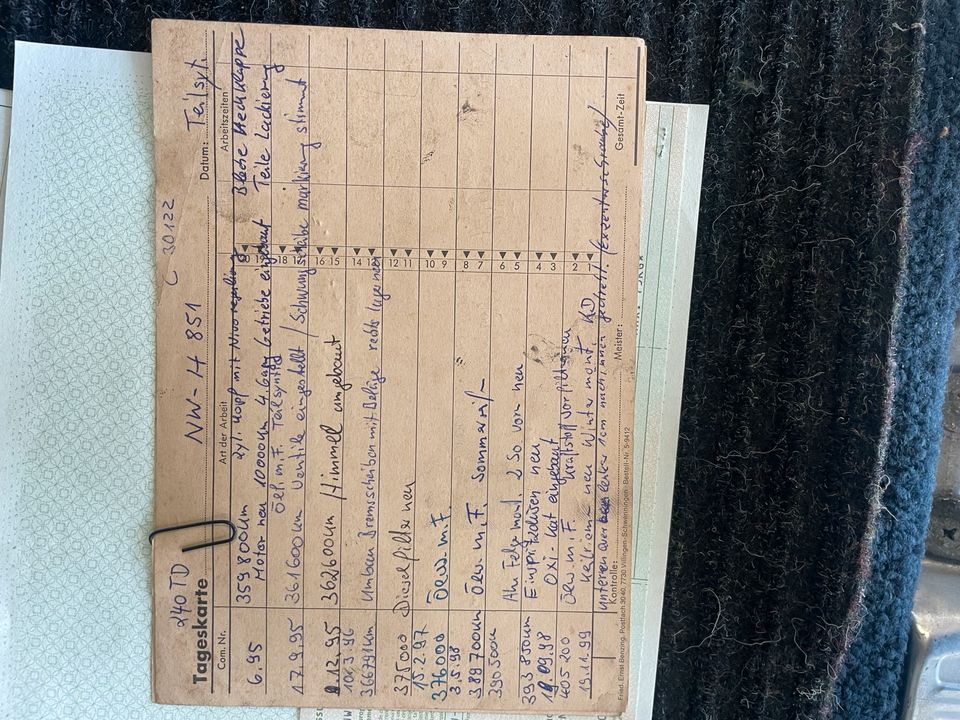 240 TD NW-H 851 C 30122
Tageskarte Datum: Teilsyt.
Com. Nr. Art der Arbeit Arbeitszeiten
6.95 359800km Zyl. Kopf mit Nivo regulierung Bleche Heckklappe
Motor neu 10000km 4. Gang Getriebe eingebaut Teile Lackierung
Öel m.F. Teilsynth
17.9.95 361600km Ventile eingestellt / Schwungscheibe markierung stimmt
1.12.95 362600km Himmel eingebaut
10.3.96
366791km Umbau Bremsscheiben mit Beläge rechts lager neu
375000 Dieselfilter neu
15.2.97
376000 Öew. m.F.
3.5.98
389700km Öew m.F. Sommerr./-
390500km Ahk Felg. mont. 2 So vorn neu
Einspritzdüsen neu
393850km Oxi-Kat eingebaut
19.09.98 Öew m.F. Kraftstoffvorfilter neu
405200
19.11.99 Keilriemen neu Winter mont. KD
unteren 1cm nach innen gedreht (Excenterschraube)
18 16 15 14 13 12 11 10 9 8 7 6 5 4 3 2 1
Kontrolle: Meister: Gesamt-Zeit
Fried. Ernst Benzing, Postfach 3040, 7730 Villingen-Schwenningen · Bestell-Nr. 5-9412